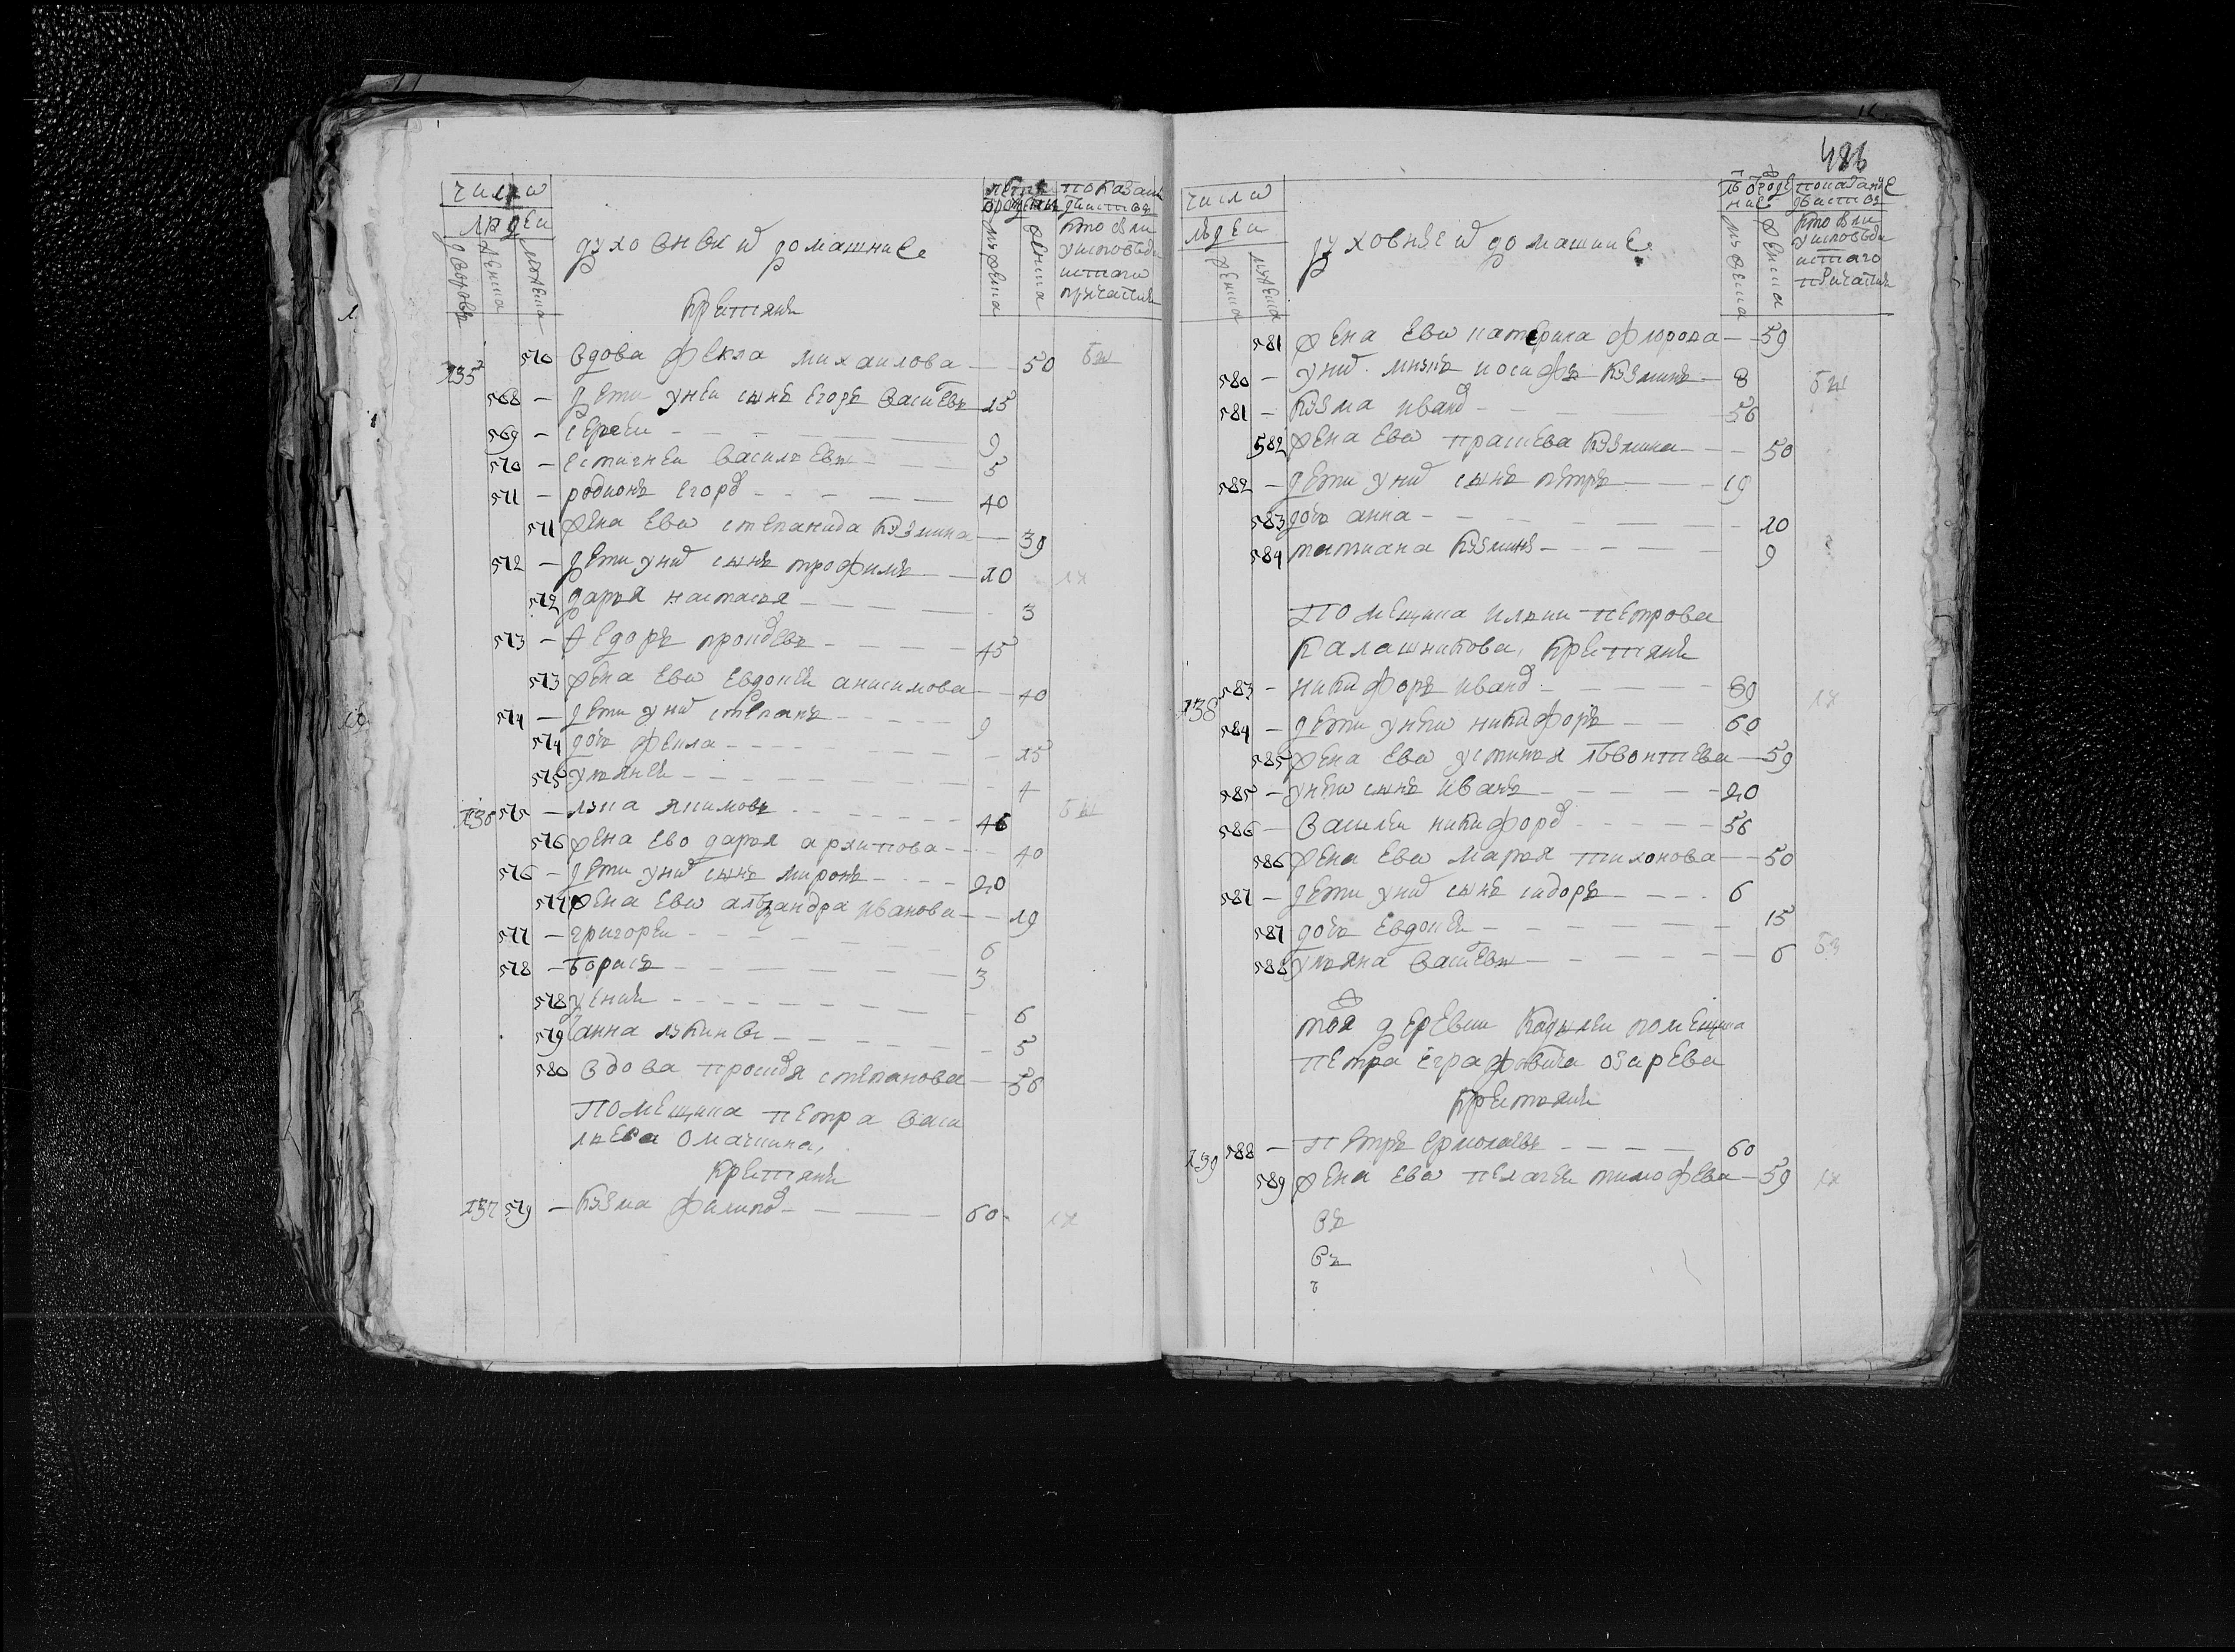 число
людеи
дворовъ
женска
мужеска
духовныи и домашние
крестяни
лѣта
рожден
мужеска
женска
показание
действъ
кто были
у исповѣди
и стаго
причастия
135 570 вдова фекла михаилова — 50
568 — дети у неи сынъ егоръ василевъ 15
569 — сергеи — 9
570 — естигнеи василевы — 5
571 — родионъ егоро — 40
571 жена ево степанида кузмина — 39
572 — дети у них сынъ трофимъ — 10
572 даря настася — 3
573 — Федоръ прокоевъ — 45
573 жена ево евдокея анисимова — 40
574 — дети у них степанъ — 9
574 дочь фекла — 15
575 уляней — 4
136 575 — лука якимовъ — 46
576 жена ево даря архипова — 40
576 — дети у них сынъ миронъ — 20
577 жена ево александра иванова — 19
577 — григореи — 6
578 — борисъ — 3
578 — 6
579 анна лукины — 5
580 вдова проскоя степанова — 56
помещика петра васи
лева омачкина,
крестяни
137 579 — кузма филипо — 60
486
число
людеи
женска
мужеска
духовные и домашние
лѣ рожде
ние
мужеска
женска
показание
действъ
кто были
у исповѣди
и стаго
причастия
581 жена ево катерина флорова — 59
580 — у них внукъ иосифъ кузминъ — 8
581 — кузма ивано — 56
582 жена ево прасковя кузмина — 50
582 — дети у них сынъ петръ — 19
583 дочь анна — 10
584 татиана кузмины — 9
помещика илии петрова
калашникова, крестяни
138 583 — никифоръ ивано — 89
584 — дети у нево никифоръ — 60
585 жена ево устиня лѣвонтева — 59
585 — у нево сынъ иванъ — 20
586 — василеи никифоро — 56
586 жена ево маря тихонова — 50
587 — дети у них сынъ сидоръ — 6
587 дочь евдокея — 15
588 уляна василевы — 6
тоя деревни кадылеи помещика
петра еграфовича озарева
крестяни
139 588 — петръ ермолаевъ — 60
589 жена ево пелагеи тимофева — 59